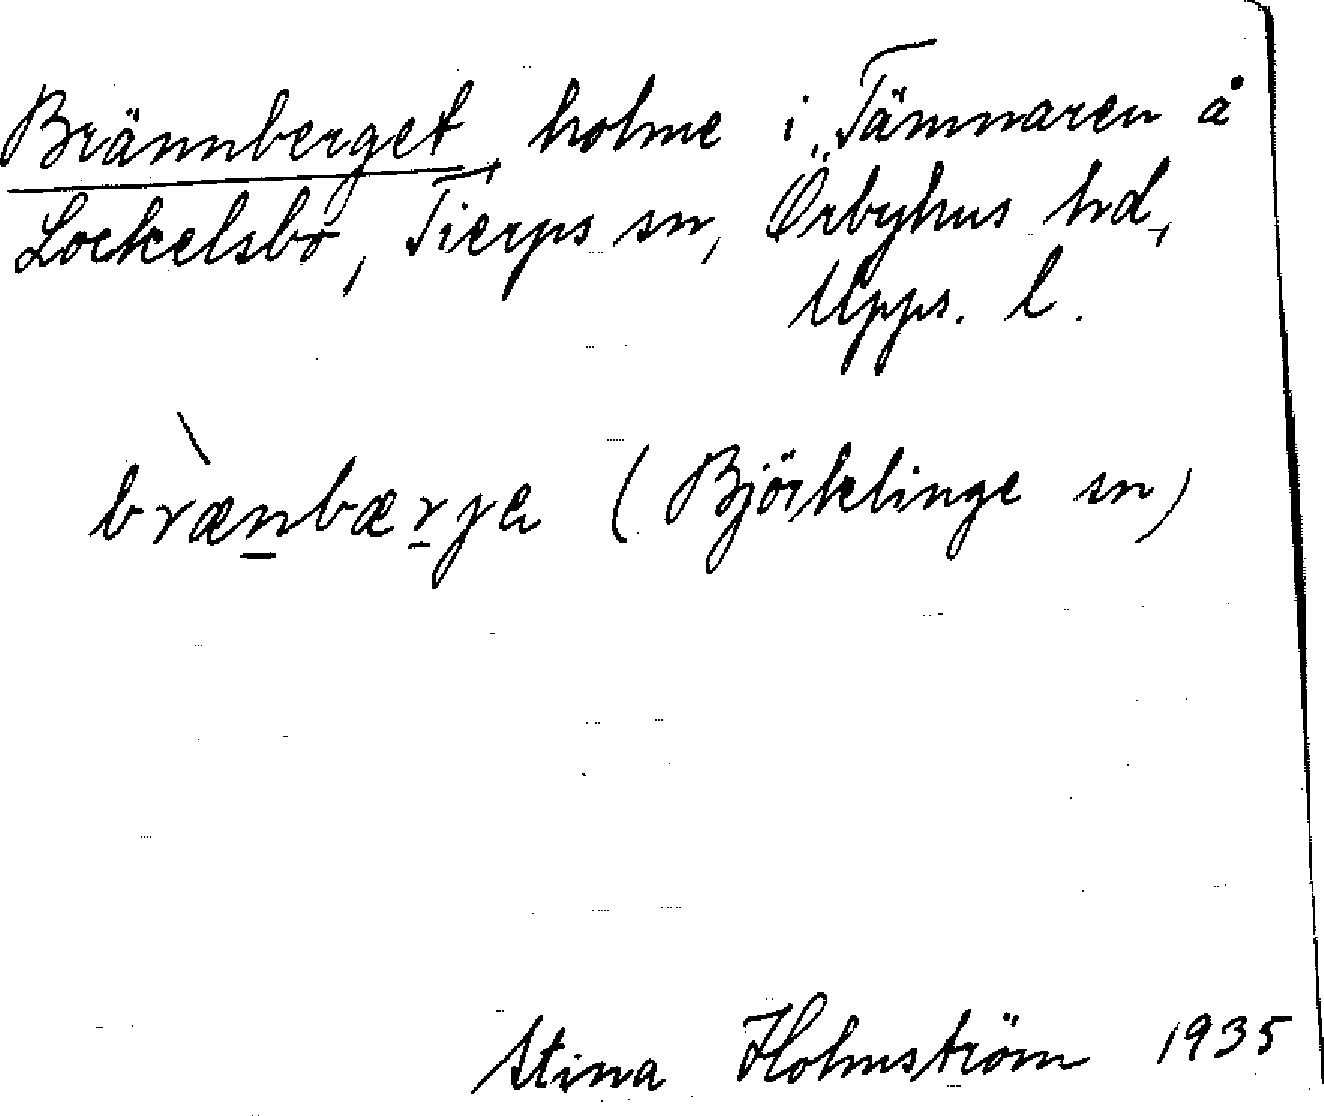 Brännberget, holme i Tämnaren å
Lockelsbo, Tierps sn, Örbyhus hd,
Upps. l.
brænbærja (Björklinge sn)
Stina Holmström 1935